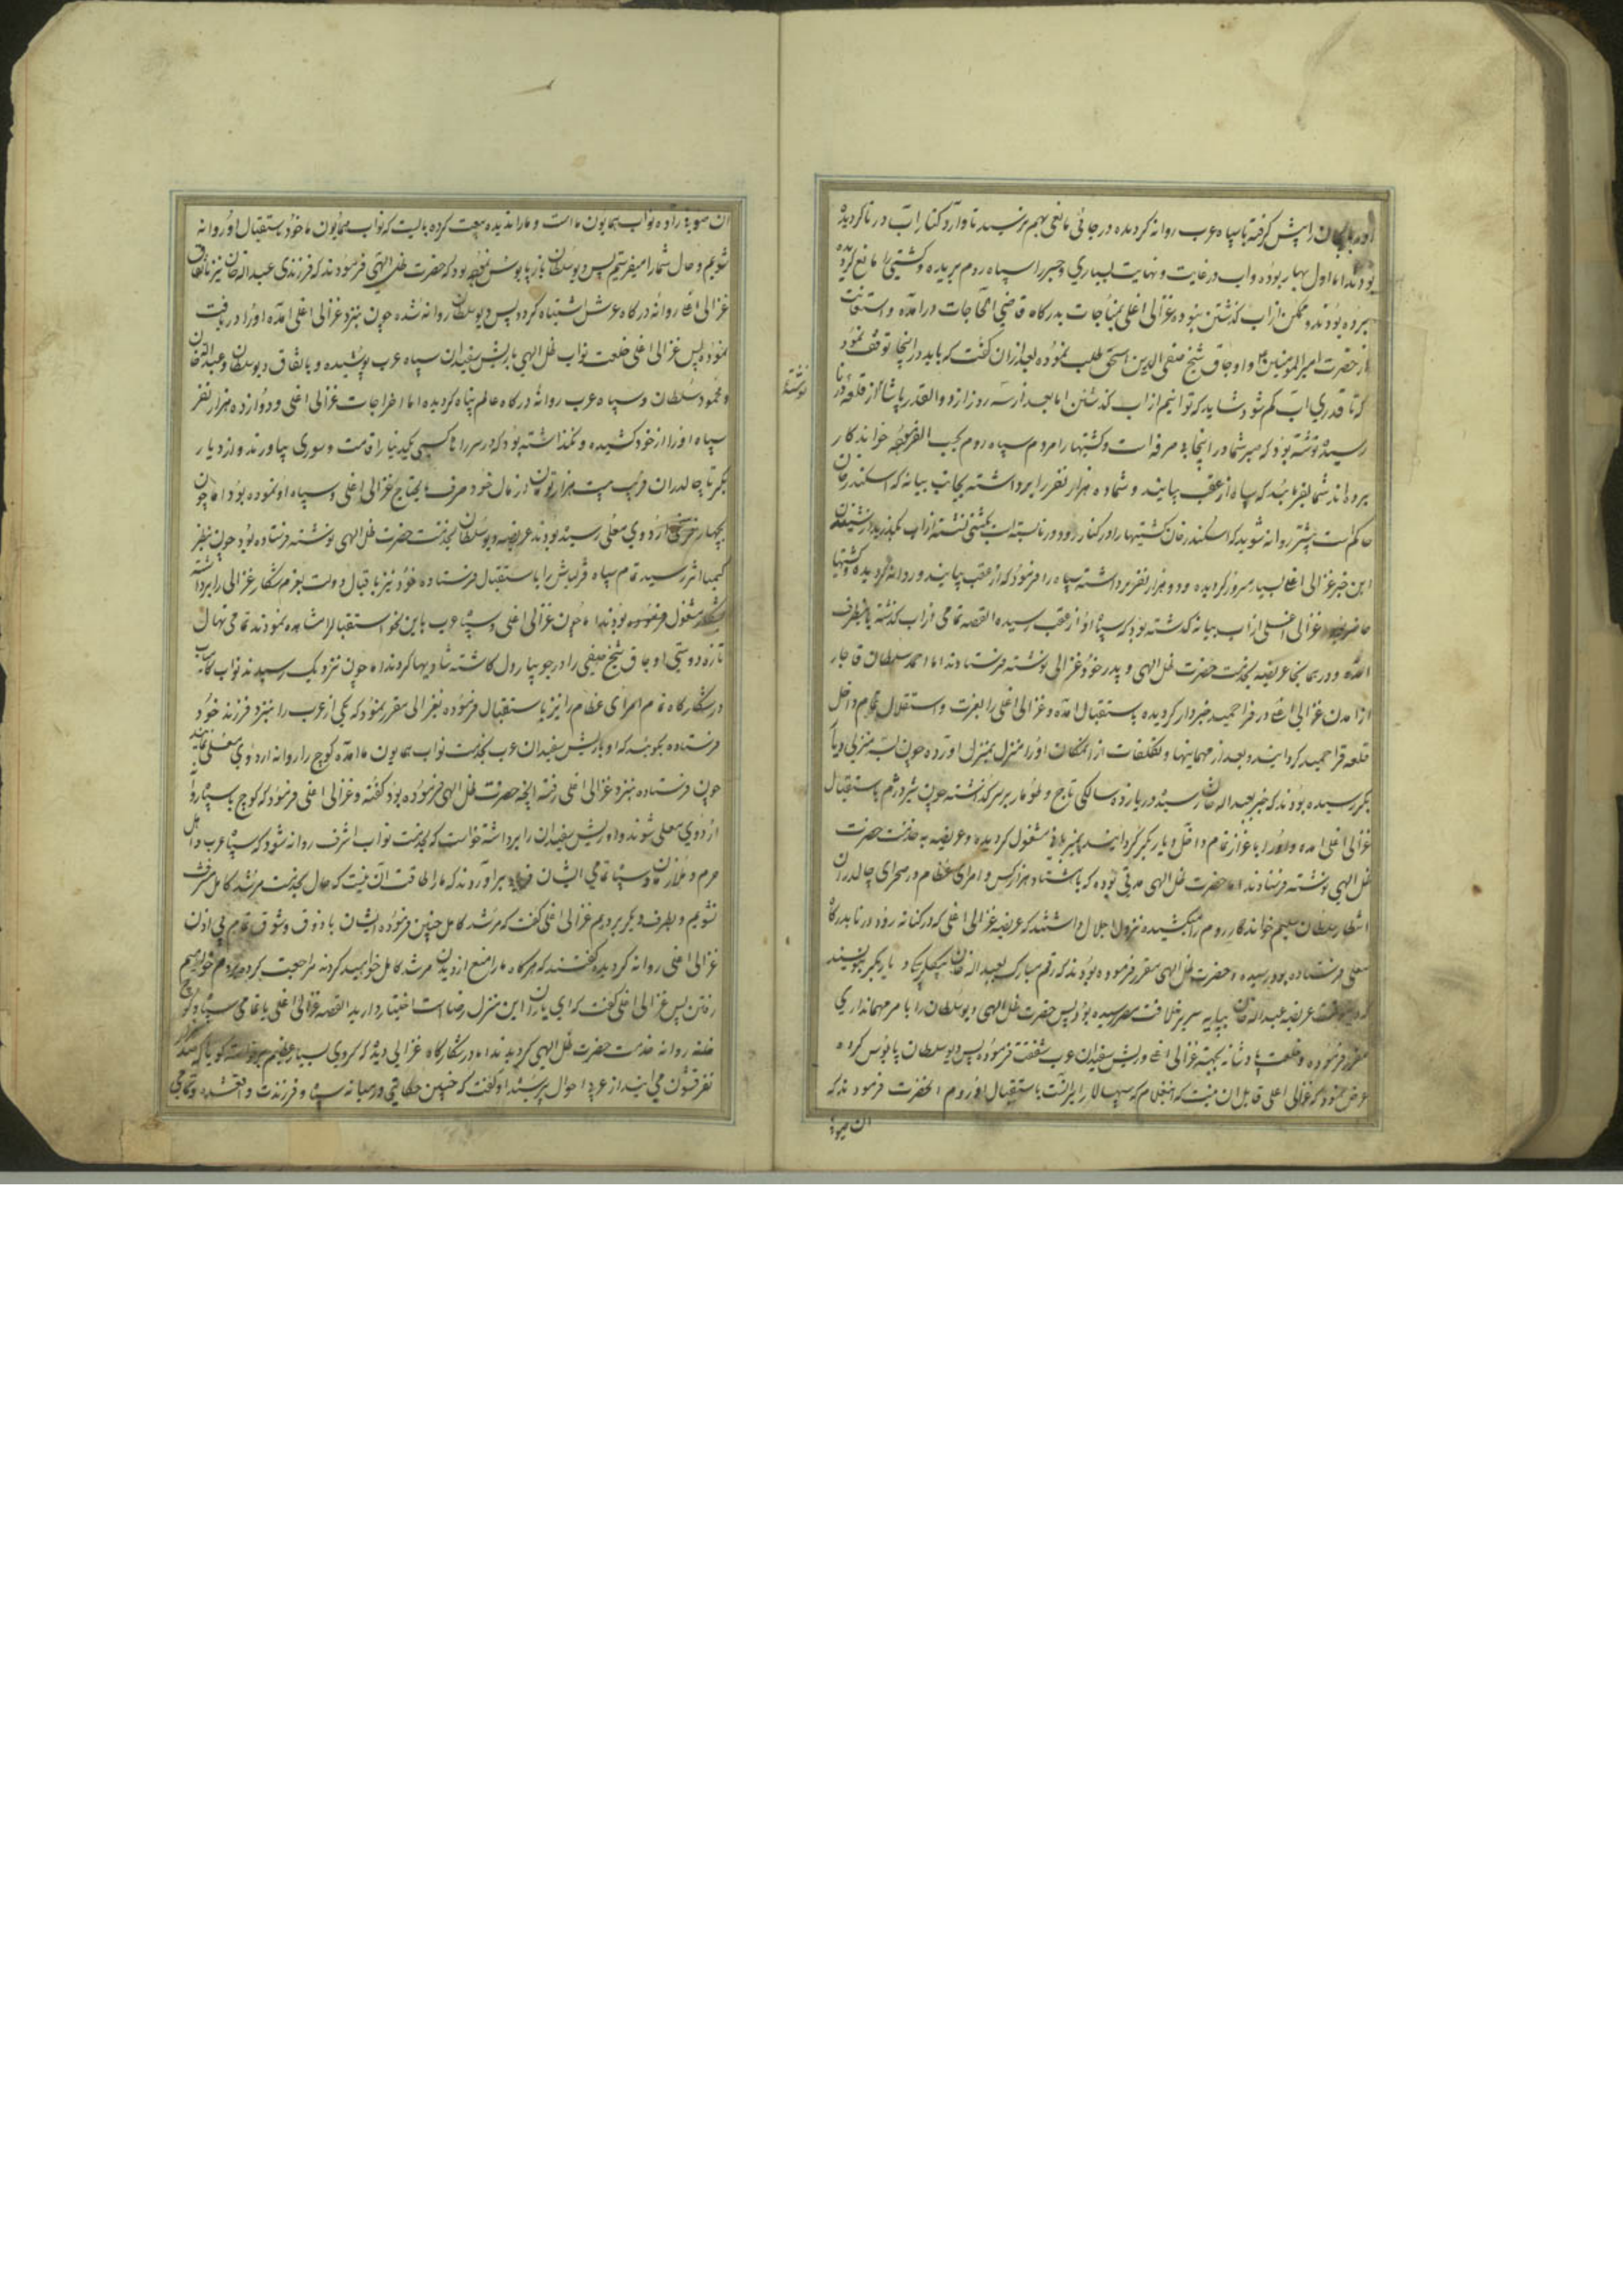 را پیش گرفته با سپاه عرب روانه گردیده در جائی مانعی بهم نرسید تا وارد کنار آب درنا گردیده
بودند اما اول بهار بوده و آب در غایت و نهایت بسیاری و جسر را سپاه روم بریده و کشتیها مانع گردیده
برده بودند و ممکن از آب گذشتن نبوده غزالی اغلی بمناجات بدرگاه قاضی الحاجات درآمده و استعانت
از حضرت امیرالمومنین و اوجاق شیخ صفی الدین اسحق طلب نموده بعد از آن گفت که باید در اینجا توقف نمود
که تا قدری آب کم شود شاید که توانیم از آب گذشتن اما بعد از سه روز از ذوالقدر پاشا از قلعه درنا
نوشته
رسید نوشته بود که صبر شما در اینجا بی صرفه است و کشتیها را مردم سپاه روم بجب الفرموده خواندکار
برده اند شما بفرمایید که سپاه از عقب بیایند و شما ده هزار نفر را برداشته بجانب بیانه که اسکندر خان
حاکم است پیشتر روانه شوید که اسکندر خان کشتیها را در کنار رود درنا بسته است بکشتی نشسته از آب بگذرید از شنیدن
این خبر غزالی اغلی بسیار مسرور گردیده و دو هزار نفر برداشته سپاه را فرمود که از عقب بیایند و روانه گردیده و کشتیها
حاضر غزالی اغلی از آب بیانه گذشته بود که سپاه او از عقب رسیده القصه تمامی از آب گذشته باینطرف
آمده و در همانجا عریضه بخدمت حضرت ظل الهی و پدر خود غزالی نوشته فرستادند اما احمد سلطان قاجار
از آمدن غزالی اغلی در قراحمید خبردار گردیده باستقبال آمده و غزالی اغلی را بعزت و استقلال تمام داخل
قلعه قراحمید گردانیده و بعد از مهمانیها و تکلفات از آنمکان او را منزل بمنزل آورده چون بسه منزلی دیار
بکر رسیده بودند که خبر بعبدالله خان رسیده در بازده سالگی تاج و طومار بر سر گذاشته چون شیر دژم باستقبال
غزالی اغلی آمده و او را باعزاز تمام داخل دیار بکر گردانیده بمیزبانی مشغول گردیده و عریضه به خدمت حضرت
ظل الهی نوشته فرستادند اما حضرت ظل الهی مدتی بوده که با هشتاد هزار کس و امرای عظام در صحرای چالدران
انتظار سلطان سلیم خواندکار روم را میکشیده نزول اجلال داشتند که عریضه غزالی اغلی که در کنار رود درنا بدرگاه
معلی فرستاده بود رسیده و حضرت ظل الهی مقرر فرموده بودند که رقم مبارک بعبدالله خان بیگلربیگی دیاربکر بنویسند
که عریضه عبدالله خان بپایه سریر خلافت مصیر رسیده بود پس حضرت ظل الهی دیوسلطان را بامر مهمانداری
مقرر فرموده و خلعت پادشاهانه بجهة غزالی اغلی و ریش سفیدان عرب شفقت فرموده پس دیوسلطان پابوس کرده
عرض نمود که غزالی اغلی قابل آن نیست که این غلام که سپهسالار ایرانست باستقبال او روم آنحضرت فرمودند که
آن صوبه
آن صوبه زاده نواب همایون ماست و ما را ندیده بیعت کرده بایست که نواب همایون ما خود باستقبال او روانه
شویم و حال شما را میفرستیم پس دیوسلطان باز پابوس نموده بود که حضرت ظل الهی فرمودند که فرزندی عبدالله خان نیز باتفاق
غزالی اغلی روانه درگاه عرش اشتباه گردد پس دیوسلطان روانه شده چون بنزد غزالی اغلی آمده او را دریافت
نموده پس غزالی اغلی خلعت نواب ظل الهی با ریش سفیدان سپاه عرب پوشیده و باتفاق دیوسلطان و عبدالله خان
و محمود سلطان و سپاه عرب روانه درگاه عالم پناه گردیده اما اخراجات غزالی اغلی و دوازده هزار نفر
سپاه او را از خود کشیده و نگذاشته بود که در سر راه کسی یکدینار را قامت و سوری بیاورند و از دیار
بکر تا چالدران قریب بیست هزار تومان از مال خود صرف مایحتاج غزالی اغلی و سپاه او نموده بود اما چون
بچهار فرسخی اردوی معلی رسیده بودند عریضه دیوسلطان بخدمت حضرت ظل الهی نوشته فرستاده بود چون بنظر
کیمیا اثر رسید تمام سپاه قزلباش را باستقبال فرستاده خود نیز باقبال و دولت بعزم شکار غزالی را برداشته
بشکار مشغول بودند اما چون غزالی اغلی و سپاه عرب باین نحو استقبال را مشاهده نمودند تمامی نهال
تازه دوستی اوجاق شیخ صفی را در جویبار دل کاشته شادیها کردند اما چون نزدیک رسیدند نواب کامیاب
در شکارگاه تمام امرای عظام را نیز باستقبال فرموده بغزالی مقرر نمود که یکی از عرب را بنزد فرزند خود
فرستاده بگویند که او با ریش سفیدان عرب بخدمت نواب همایون ما آمده کوچ را روانه اردوی معلی نمایند
چون فرستاده بنزد غزالی اغلی رفته آنچه حضرت ظل الهی فرموده بود گفته و غزالی اغلی فرمود که کوچ با سپاه روانه
اردوی معلی شوند و او ریش سفیدان را برداشته خواست که بخدمت نواب اشرف روانه شود که سپاه عرب و اهل
حرم و ملازمان و سپاه تمامی ایشان فریاد برآوردند که ما را طاقت آن نیست که حال بخدمت مرشد کامل مشرف
نشویم و بطرف دیگر برویم غزالی اغلی گفت که مرشد کامل چنین فرموده ایشان با ذوق و شوق تمام بی اذن
غزالی اغلی روانه گردیده گفتند که هرگاه ما را منع از دیدن مرشد کامل خواهید کردند مراجعت کرده بروم خواهیم
رفتن پس غزالی اغلی گفت که ای یاران این منزل رضاست اختیار دارید القصه غزالی اغلی با تمامی سپاه و کوچ
خانه روانه خدمت حضرت ظل الهی گردیدند اما در شکارگاه غزالی دید که گروی بسیار عظیم برخاسته گویا که صد هزار
نفر قشون می آیند از عرب احوال پرسید او گفت که چنین حکایتی در میانه سپاه و فرزندت واقع شده و تمامی